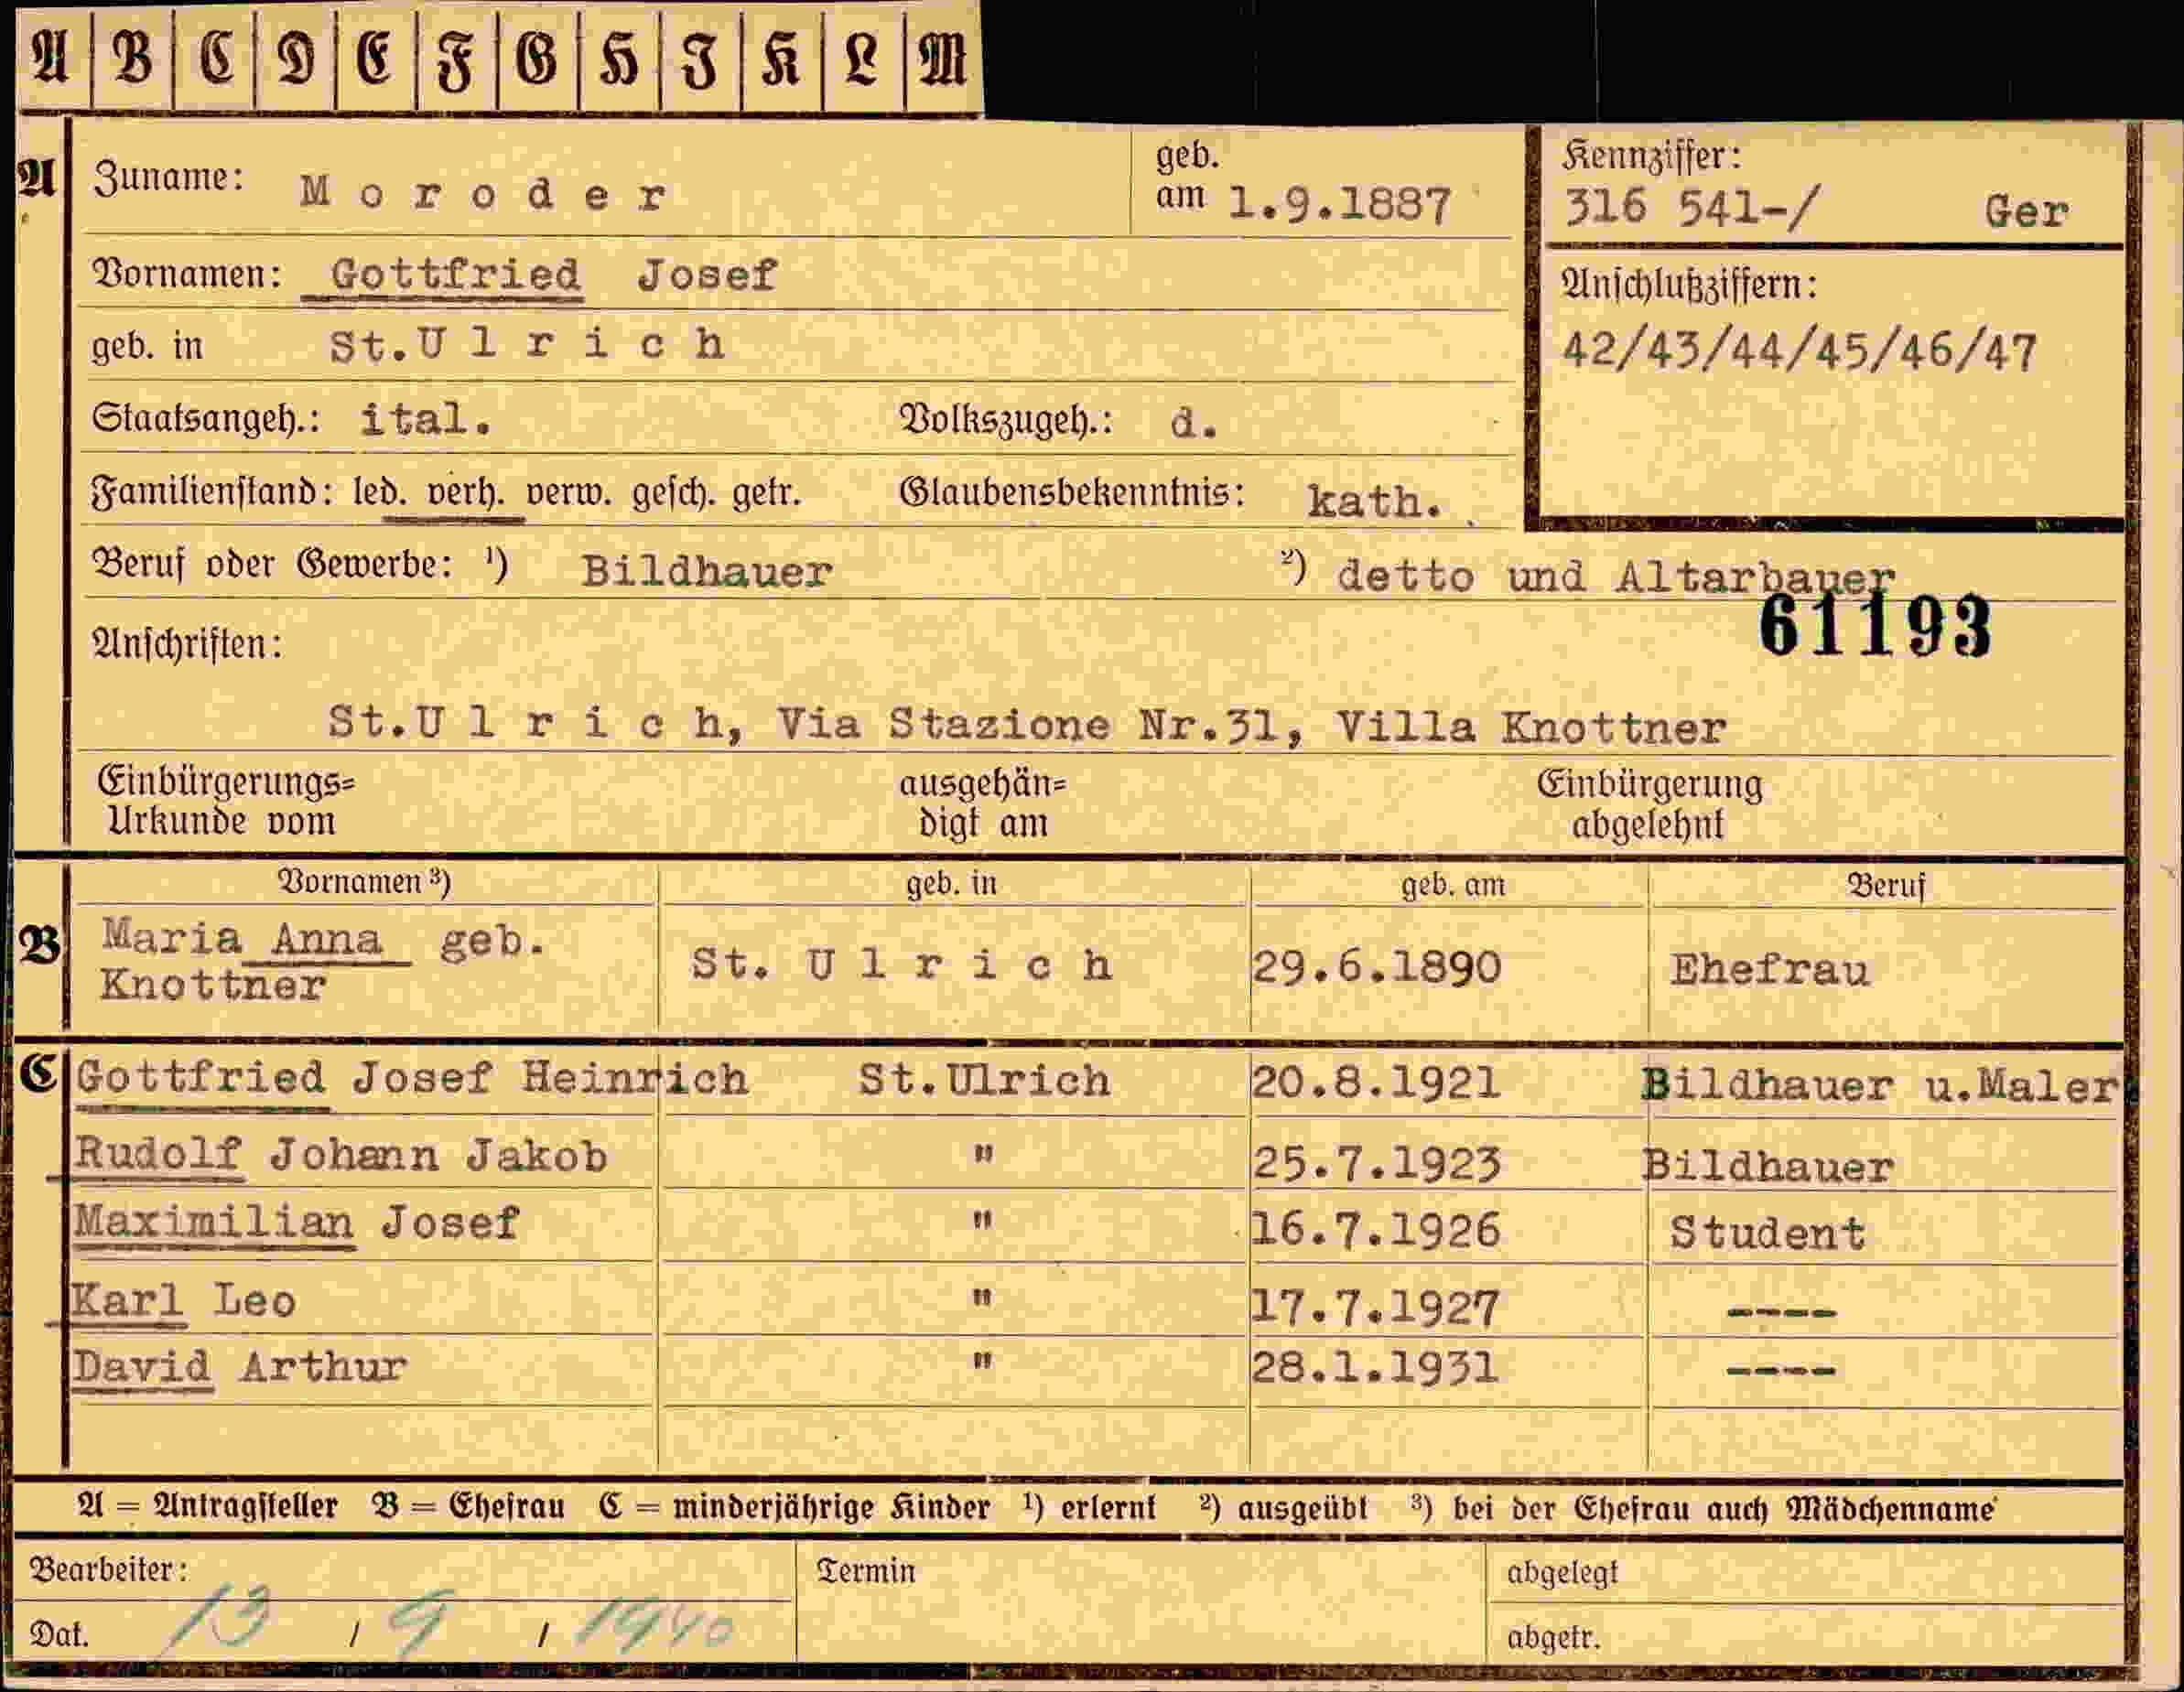 A B C D E F G H J K L M
A Zuname: Moroder geb. am 1.9.1887
Kennziffer: 316 541-/ Ger
Vornamen: Gottfried Josef
Anschlußziffern:
42/43/44/45/46/47
geb. in St.Ulrich
Staatsangeh.: ital. Volkszugeh.: d.
Familienstand: led. verh. verw. gesch. getr. Glaubensbekenntnis: kath.
Beruf oder Gewerbe: ¹) Bildhauer ²) detto und Altarbauer
61193
Anschriften:
St.Ulrich, Via Stazione Nr.31, Villa Knottner
Einbürgerungs= ausgehän= Einbürgerung
Urkunde vom digt am abgelehnt
Vornamen ³) geb. in geb. am Beruf
B Maria Anna geb. Knottner St. Ulrich 29.6.1890 Ehefrau
C Gottfried Josef Heinrich St.Ulrich 20.8.1921 Bildhauer u.Maler
Rudolf Johann Jakob " 25.7.1923 Bildhauer
Maximilian Josef " 16.7.1926 Student
Karl Leo " 17.7.1927 ----
David Arthur " 28.1.1931 ----
A = Antragsteller B = Ehefrau C = minderjährige Kinder ¹) erlernt ²) ausgeübt ³) bei der Ehefrau auch Mädchenname
Bearbeiter: Termin abgelegt
Dat. 13 / 9 / 1940 abgetr.